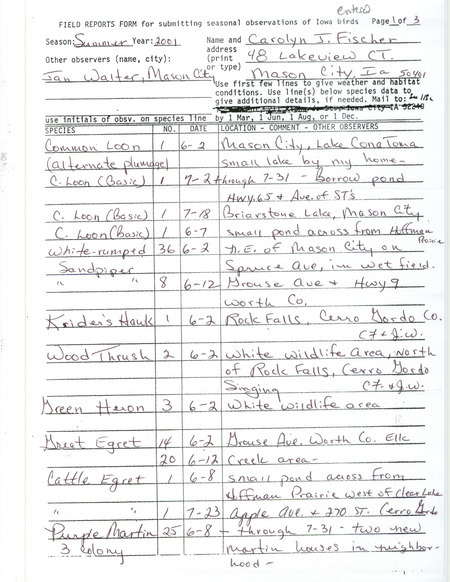 entered
FIELD REPORTS FORM for submitting seasonal observations of Iowa birds Page 1 of 3
Season: Summer Year: 2001 Name and Carolyn J. Fischer
Other observers (name, city): address 48 Lakeview CT.
(print
or type) Mason City, Ia 50401
Jan Walter, Mason City
Use first few lines to give weather and habitat
conditions. Use line(s) below species data to
give additional details, if needed. Mail to:
use initials of obsv. on species line by 1 Mar, 1 Jun, 1 Aug, or 1 Dec.
SPECIES NO. DATE LOCATION - COMMENT - OTHER OBSERVERS
Common Loon 1 6-2 Mason City, Lake
(alternate plumage) small lake by my home-
C. Loon (Basic) 1 7-2 through 7-31 - Borrow pond
Hwy. 65 & Ave. of ST's
C. Loon (Basic) 1 7-18 Briarstone Lake, Mason City
C. Loon (Basic) 1 6-7 small pond across from Hoffman Prairie
White-rumped 36 6-2 N.E. of Mason City on
Sandpiper Spruce Ave, in wet field.
" " 8 6-12 Grouse Ave & Hwy 9
Worth Co.
Krider's Hawk 1 6-2 Rock Falls, Cerro Gordo Co.
CF & J.W.
Wood Thrush 2 6-2 White Wildlife Area, North
of Rock Falls, Cerro Gordo
Singing CF. & J.W.
Green Heron 3 6-2 White wildlife area
Great Egret 14 6-2 Grouse Ave. Worth Co. Elk
20 6-12 Creek area-
Cattle Egret 1 6-8 small pond across from
Hoffman Prairie west of Clear Lake
" " 1 7-23 Apple Ave & 270 ST. Cerro Gordo
Purple Martin 25 6-8 - through 7-31 - two new
3 colony martin houses in neighbor-
hood -